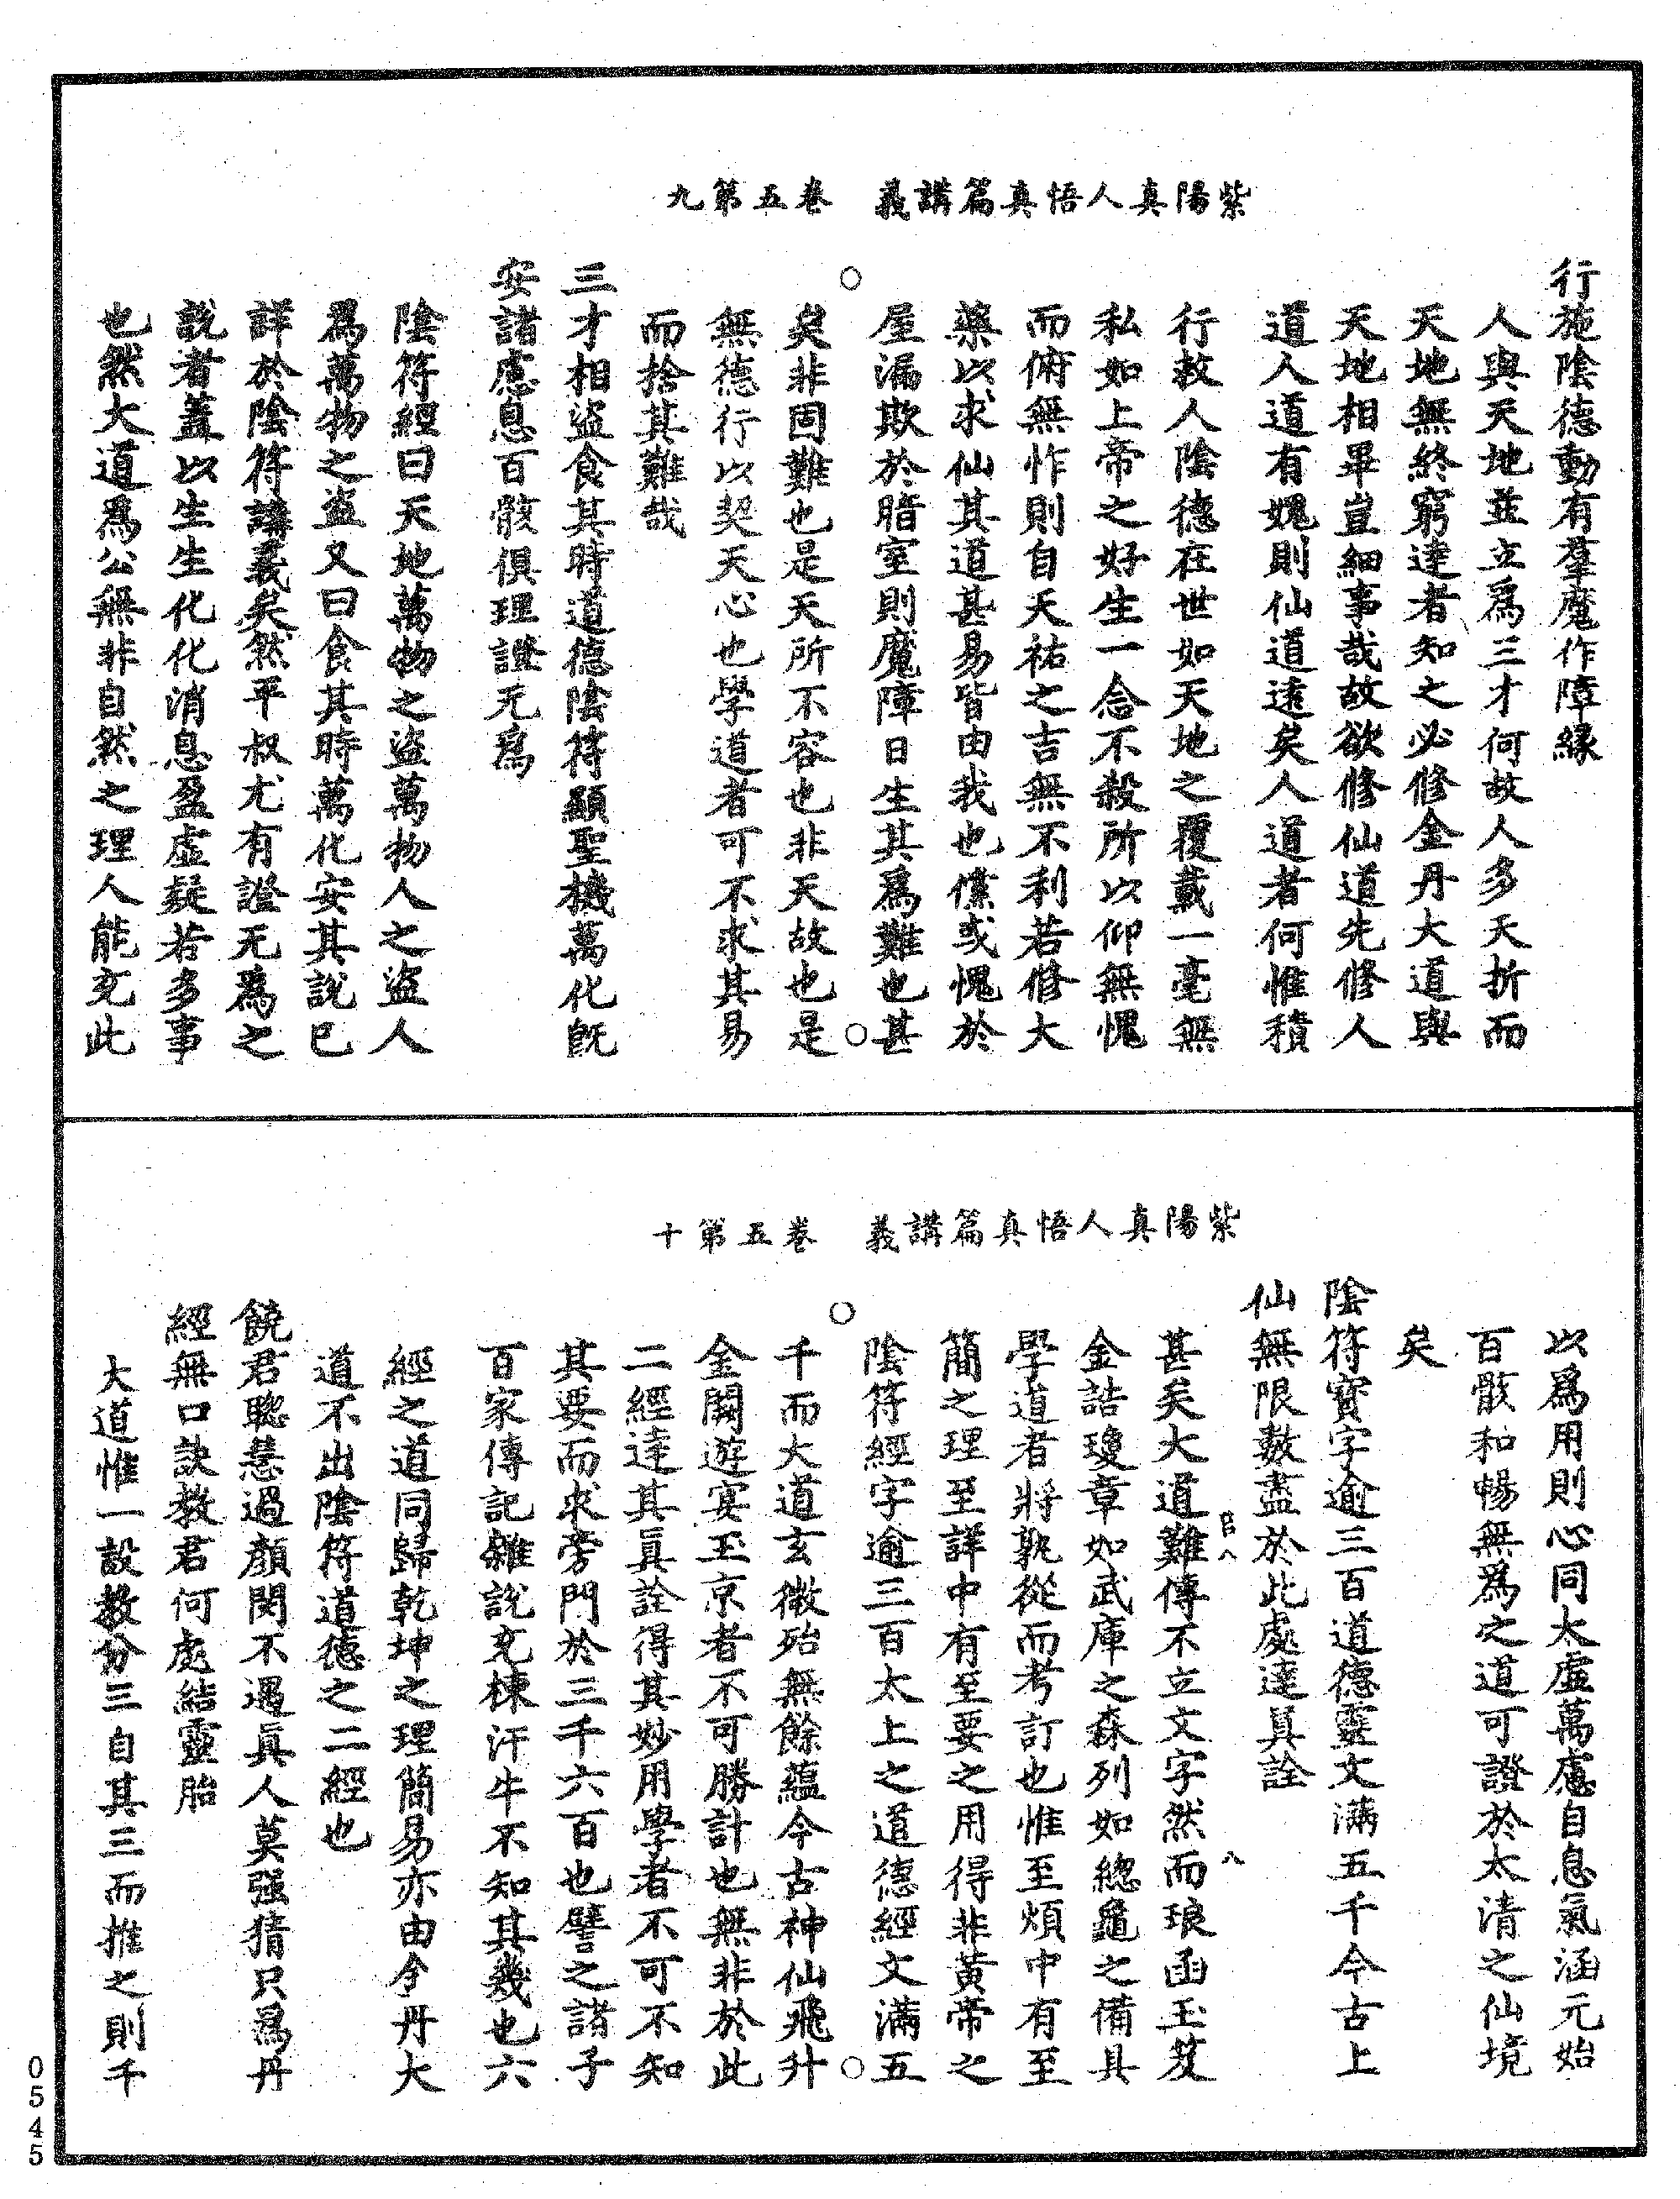 紫陽真人悟真篇講義　卷五第九
行施陰德動有羣魔作障緣
人與天地並立爲三才何故人多夭折而
天地無終窮達者知之必修金丹大道與
天地相畢豈細事哉故欲修仙道先修人
道人道有媿則仙道遠矣人道者何惟積
行救人陰德在世如天地之覆載一毫無
私如上帝之好生一念不殺所以仰無愧
而俯無怍則自天祐之吉無不利若修大
藥以求仙其道甚易皆由我也儻或愧於
屋漏欺於暗室則魔障日生其爲難也甚
矣非固難也是天所不容也非天故也是
無德行以契天心也學道者可不求其易
而捨其難哉
三才相盜食其時道德陰符顯聖機萬化旣
安諸慮息百骸俱理證无爲
陰符經曰天地萬物之盜萬物人之盜人
爲萬物之盜又曰食其時萬化安其說已
詳於陰符講義矣然平叔尤有證无爲之
說者蓋以生生化化消息盈虛疑若多事
也然大道爲公無非自然之理人能充此
紫陽真人悟真篇講義　卷五第十
以爲用則心同太虛萬慮自息氣涵元始
百骸和暢無爲之道可證於太清之仙境
矣
陰符寶字逾三百道德靈文滿五千今古上
仙無限數盡於此處達眞詮
甚矣大道難傳不立文字然而琅函玉笈
金誥瓊章如武庫之森列如總龜之備具
學道者將孰從而考訂也惟至煩中有至
簡之理至詳中有至要之用得非黃帝之
陰符經字逾三百太上之道德經文滿五
千而大道玄微殆無餘蘊今古神仙飛升
金闕遊宴玉京者不可勝計也無非於此
二經達其眞詮得其妙用學者不可不知
其要而求旁門於三千六百也譬之諸子
百家傳記雜說充棟汗牛不知其幾也六
經之道同歸乾坤之理簡易亦由今丹大
道不出陰符道德之二經也
饒君聰慧過顏閔不遇眞人莫强猜只爲丹
經無口訣教君何處結靈胎
大道惟一設教分三自其三而推之則千
0545